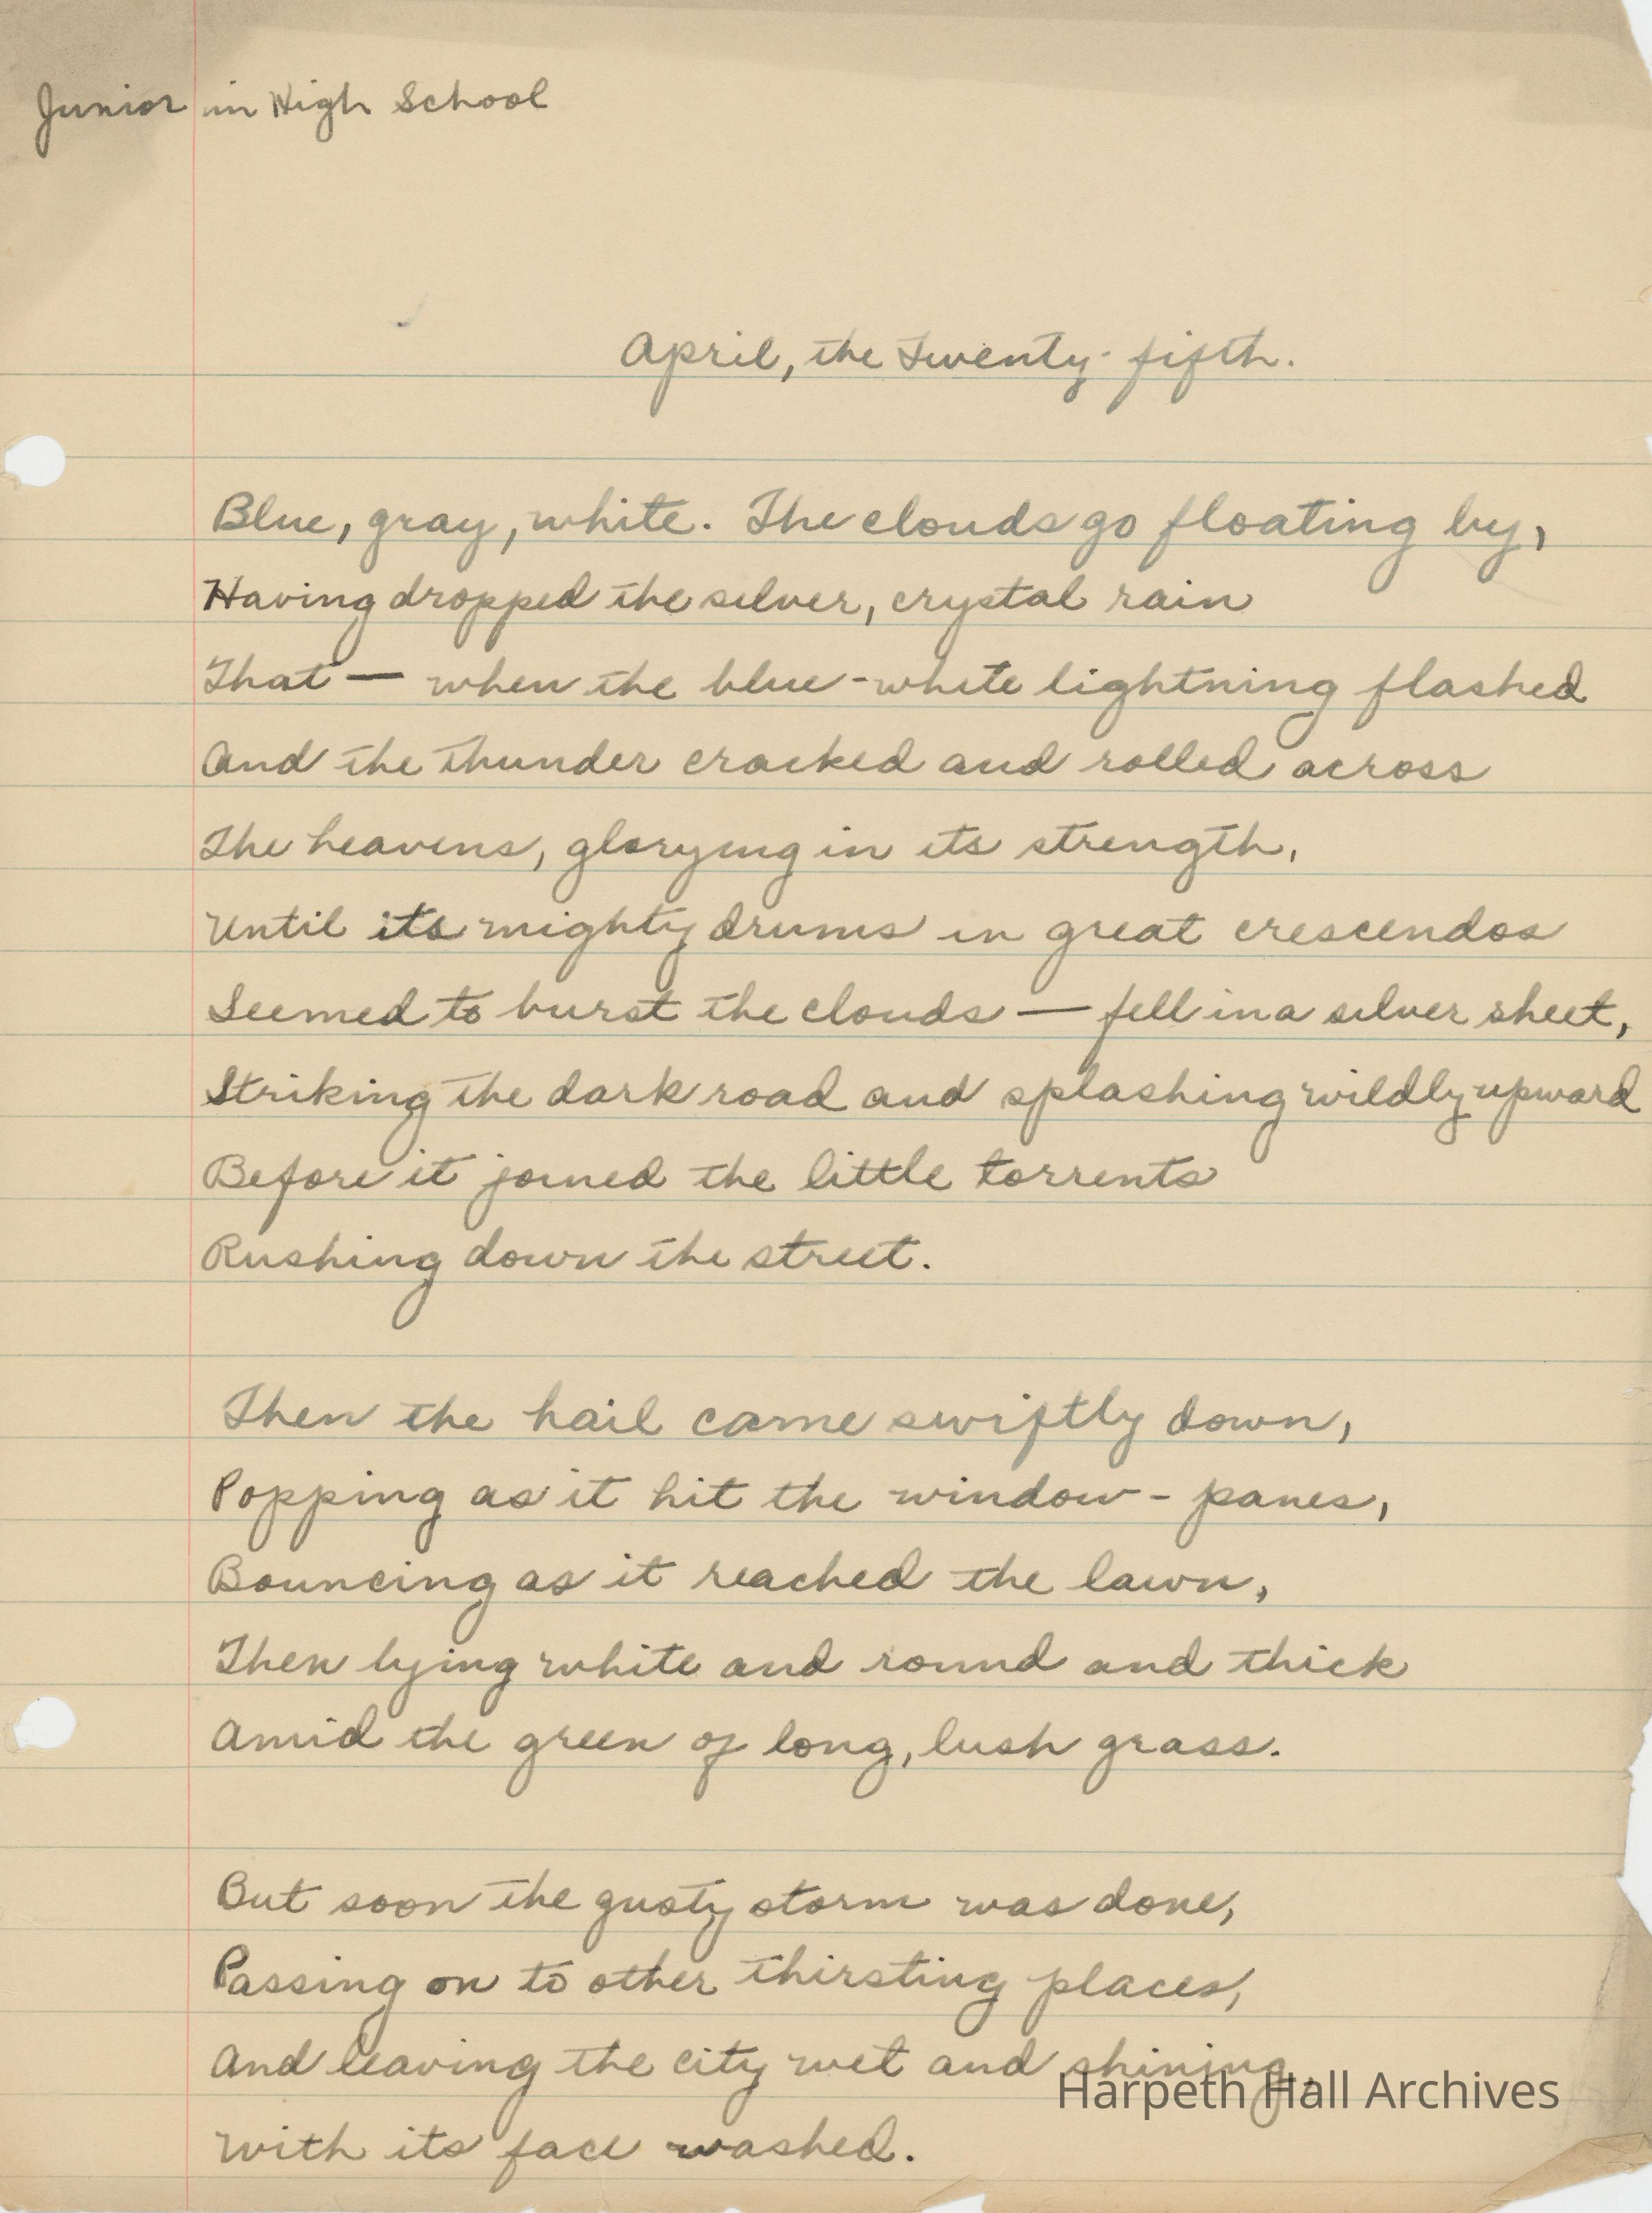 Junior in High School
April, the Twenty-fifth.
Blue, gray, white. The clouds go floating by,
Having dropped the silver, crystal rain
That — when the blue-white lightning flashed
And the thunder cracked and rolled across
The heavens, glorying in its strength,
Until its mighty drums in great crescendos
Seemed to burst the clouds — fell in a silver sheet,
Striking the dark road and splashing wildly upward
Before it joined the little torrents
Rushing down the street.
Then the hail came swiftly down,
Popping as it hit the window-panes,
Bouncing as it reached the lawn,
Then lying white and round and thick
Amid the green of long, lush grass.
But soon the gusty storm was done,
Passing on to other thirsting places,
And leaving the city wet and shining,
Harpeth Hall Archives
With its face washed.